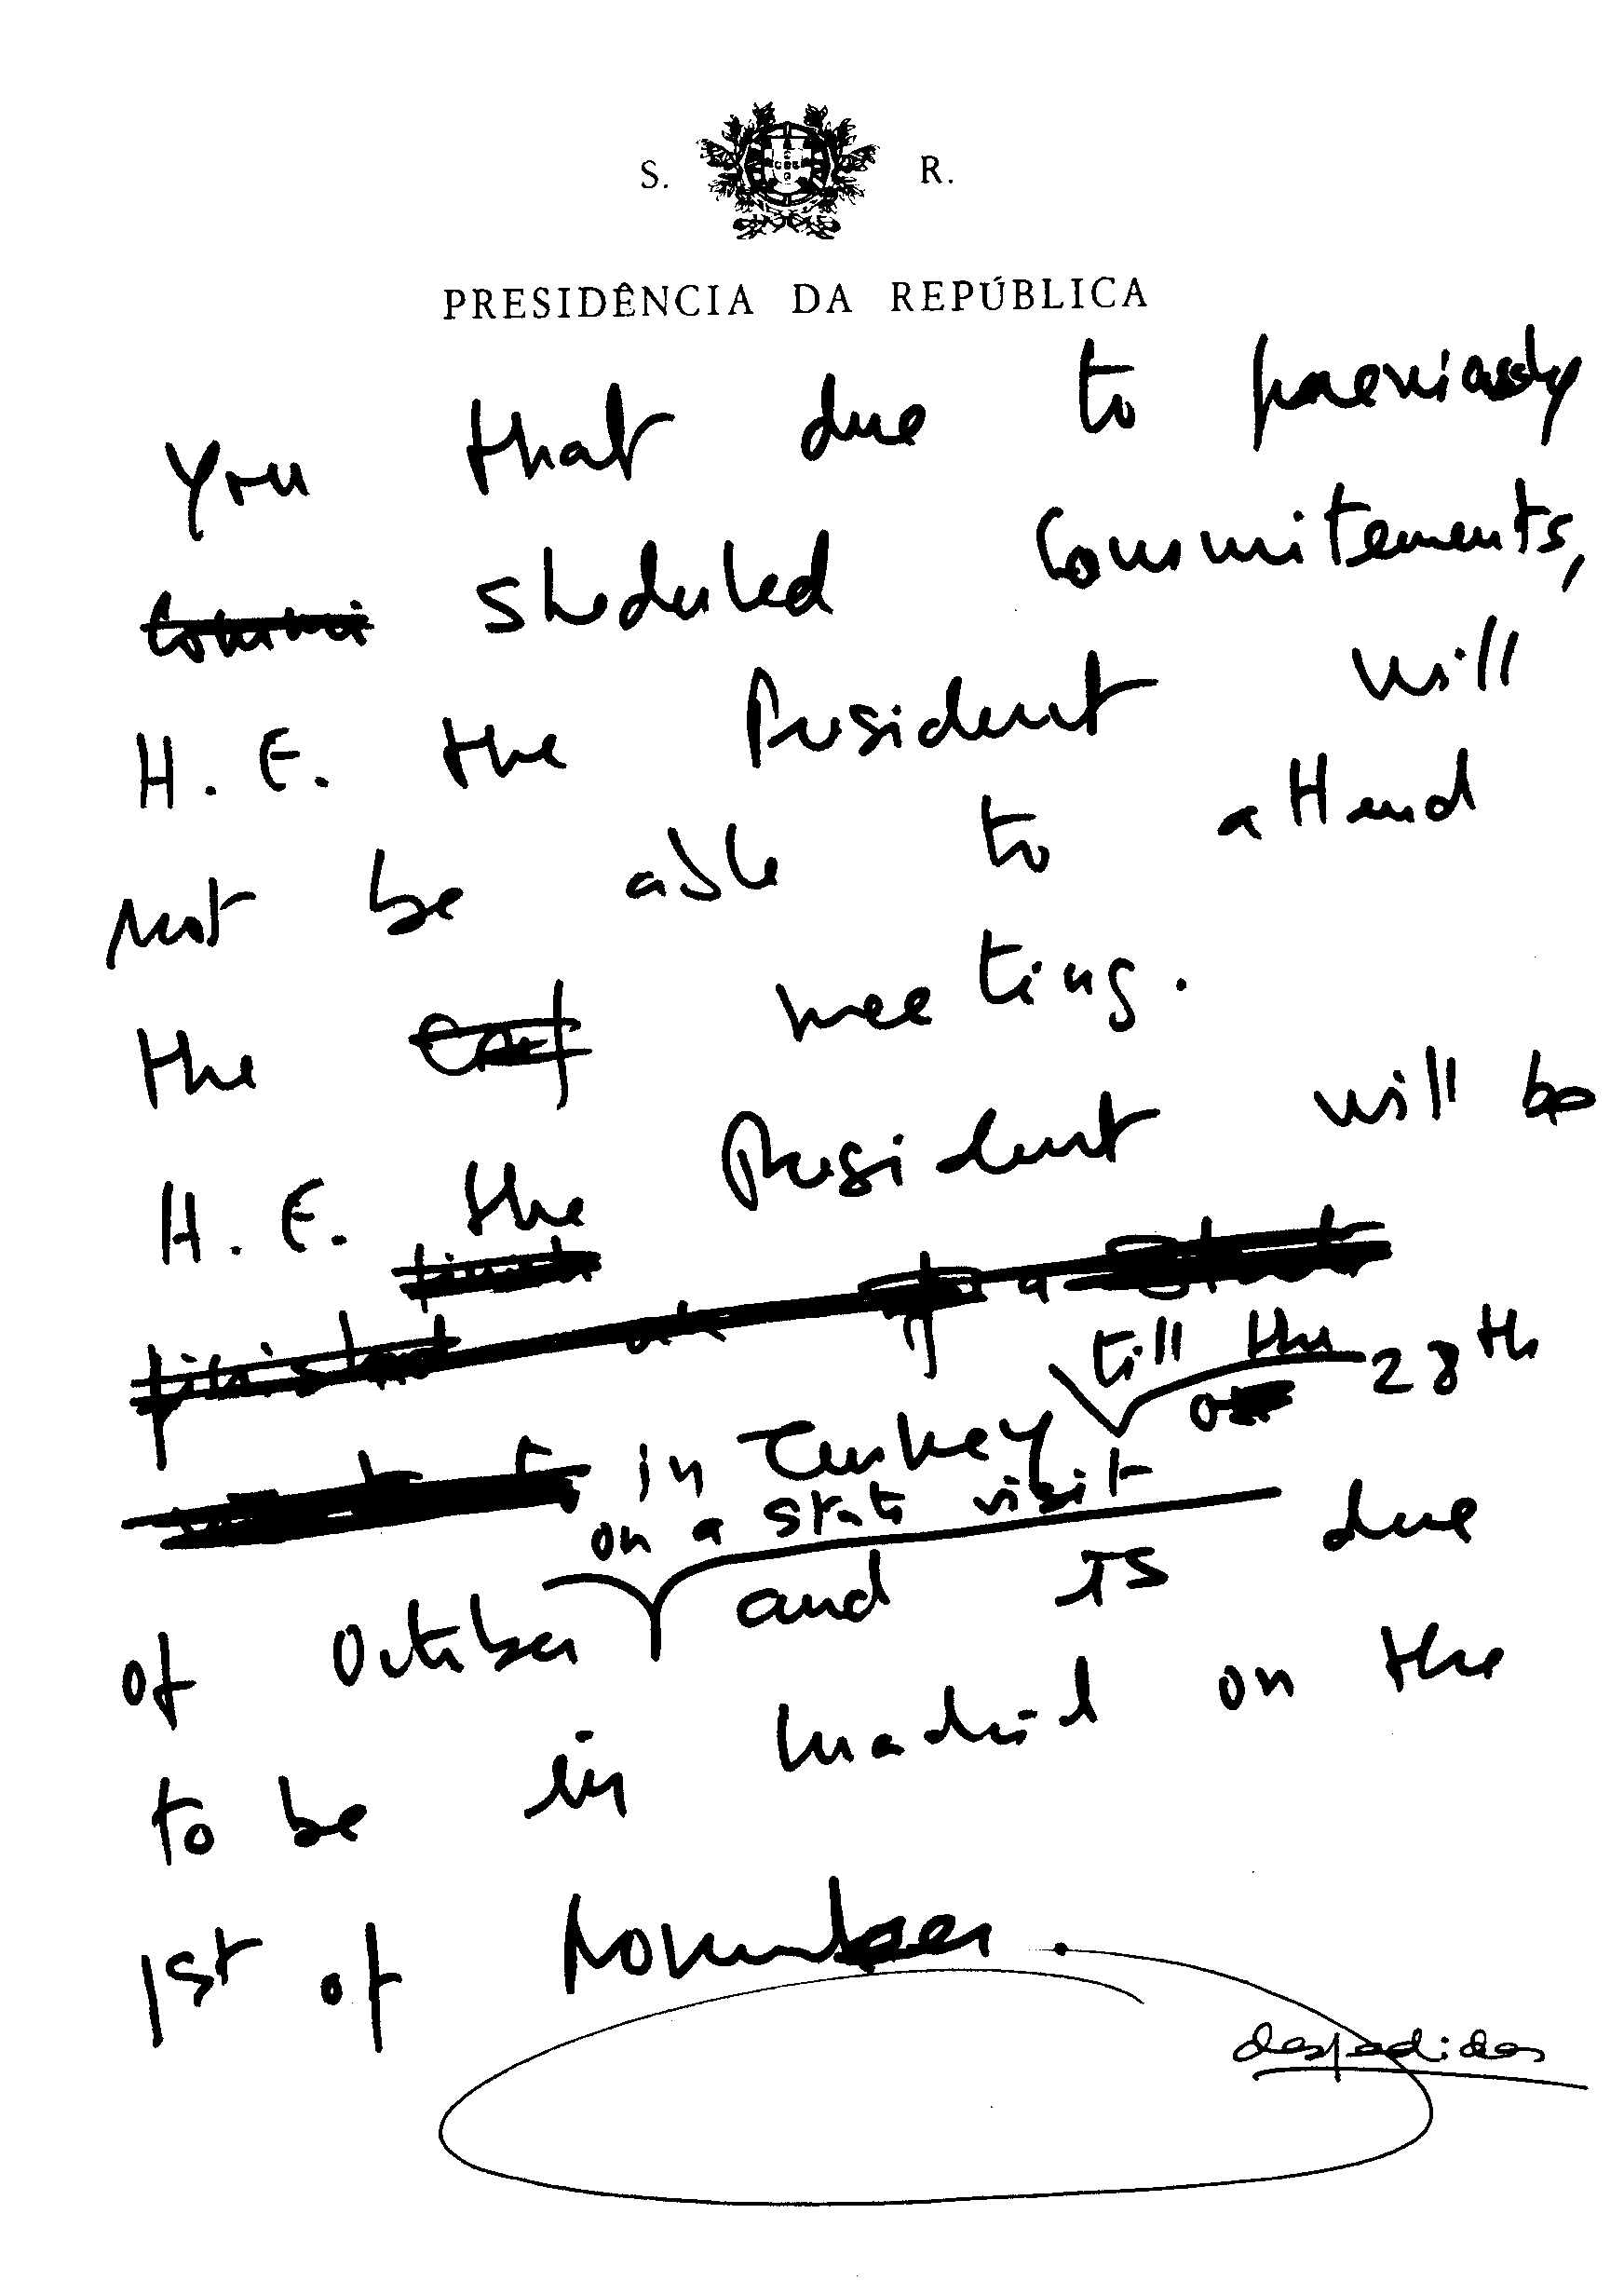 S. R.
PRESIDÊNCIA DA REPÚBLICA
you that due to previously
commi sheduled committements,
H. E. the President will
not be able to attend
the meeting.
H. E. the President will be
till the
in Turkey 28th
on a state visit
of October and is due
to be in Madrid on the
1st of November.
despedidas